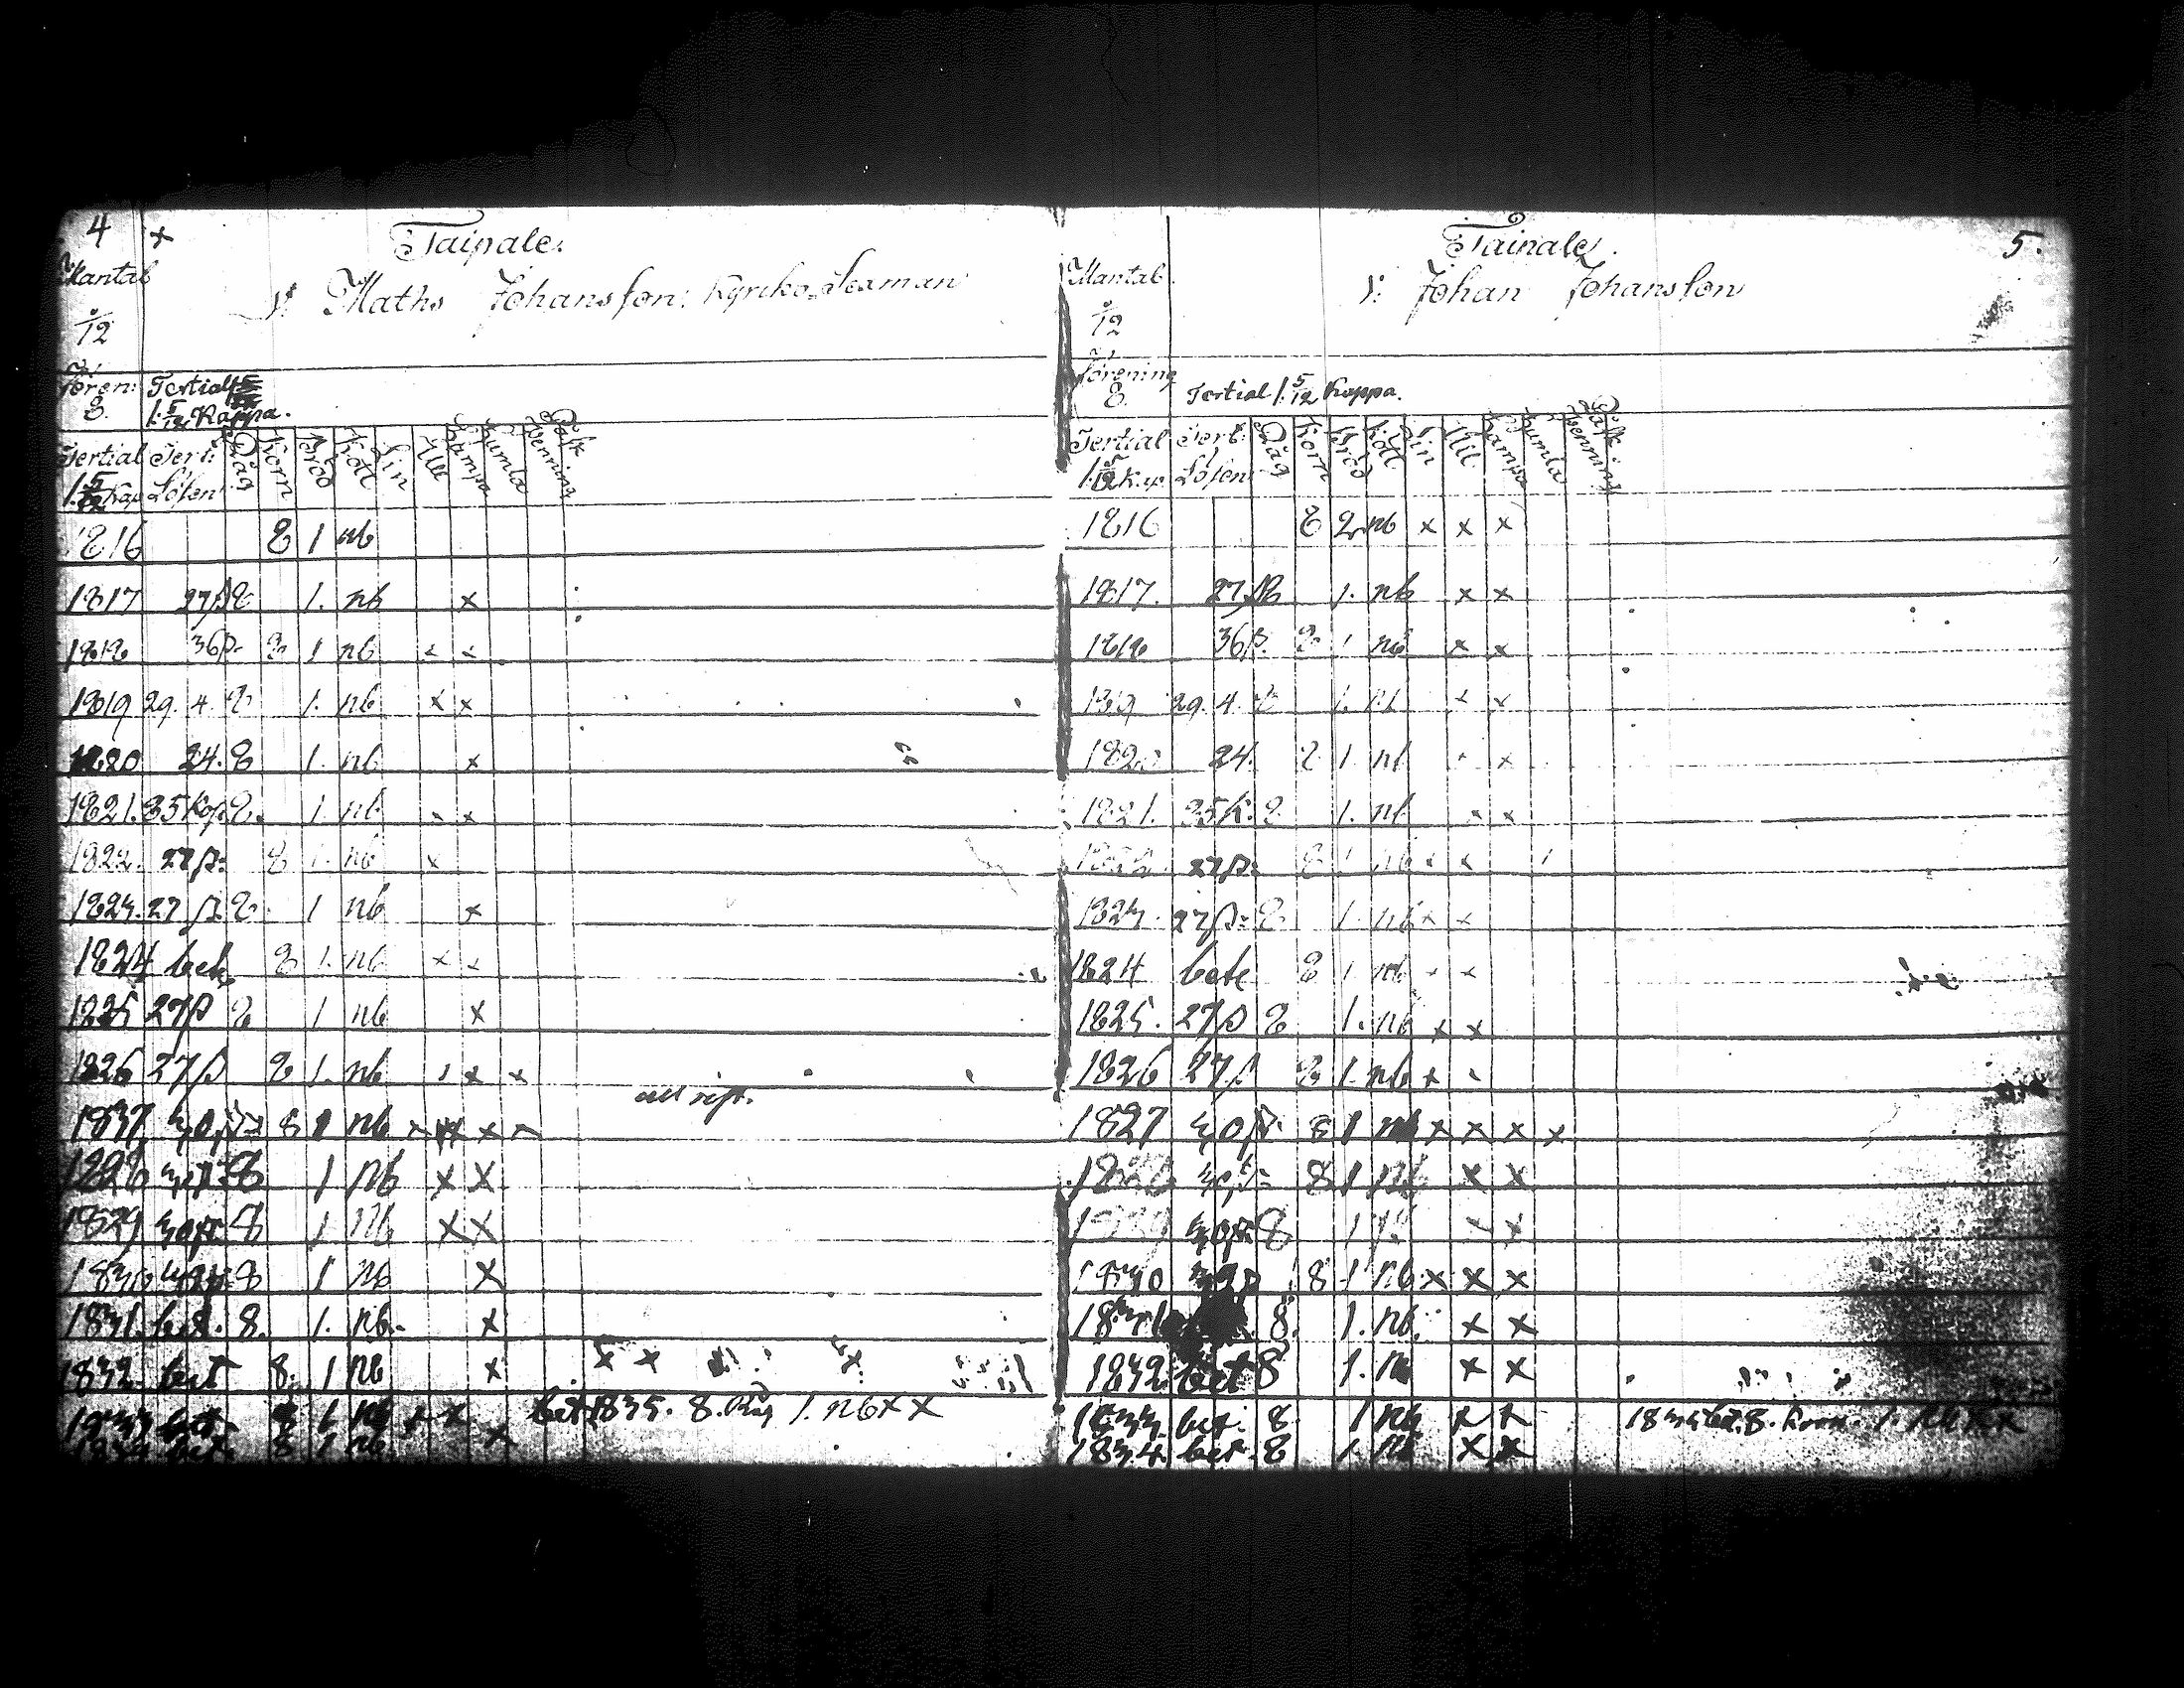 4 x Taipale.
Mantal
N: Maths Johansson: Kyrko-Sexman
5/12
Fören: Tertial
8. 1. 5/12 Kappa.
Tertial Terti: Råg Korn Bröd Kött Lin Ull Hampa Humla Påsk Penning
1. 5/12 Kap Lösen
1816 8 1 nb
1817 27β 8 1. nb x
1818 36β. 8 1 nb x x
1819 29. 4. 8 1. nb x x
1820 24. 8 1. nb x
1821. 35 Kop. 8. 1. nb x x
1822. 27β: 8 1. nb x
1823. 27 β. 8 1 nb x
1824 bet 8 1. nb x x
1825 27β 8 1 nb x
1826 27β 8 1. nb x x x
all rift.
8 1 nb x x x
1828 8 1 nb x x
1829 8 1 nb x x
1830 8 1 nb x
1831. bet. 8. 1. nb. x
1832 bet 8. 1 nb x x x
1833 bet. 8 1 nb x x bet 1835. 8. Råg 1. nb x x
1834 bet. 8. 1 nb. x
Taipale. 5.
Mantal
N: Johan Johansson
5/12
Förening
8. Tertial 1. 5/12 Kappa.
Tertial Terti: Råg Korn Bröd Kött Lin Ull Hampa Humla Påsk Penning
1. 5/12 Kap Lösen
1816 8 2 nb x x x
1817. 27β 8 1. nb x x
1818 36β. 8 1 nb x x
1819 29. 4. 8 1. nb x x
1820 24. 8 1. nb x x
1821. 35 K. 8. 1. nb x x
1822. 27β: 8 1 nb x x
1823. 27β: 8 1. nb x x
1824 bete 8 1 nb x x
1825. 27β 8 1. nb x x
1826 27β 8 1. nb x
1827 30β. 8 1 nb x x x x
1828 8 1 nb x x
1829 8 1 nb x x
1830 8 1 nb x x x
1831 8. 1. nb. x x
1832 bet 8 1. n x x
1833 bet. 8 1 nb x x bet. 8. Korn. 1. nb x x
1834. bet. 8 1. nb x x